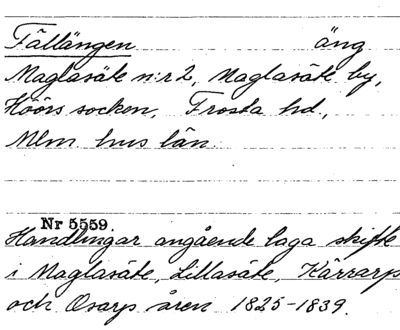 Fällängen äng
Maglasäte n:r 2, Maglasäte by,
Höörs socken, Frosta hd.,
Mlm. hus län.
Nr 5559.
Handlingar angående laga skifte
i Maglasäte, Lillasäte, Kärrarps
och Osarp åren 1825-1839.